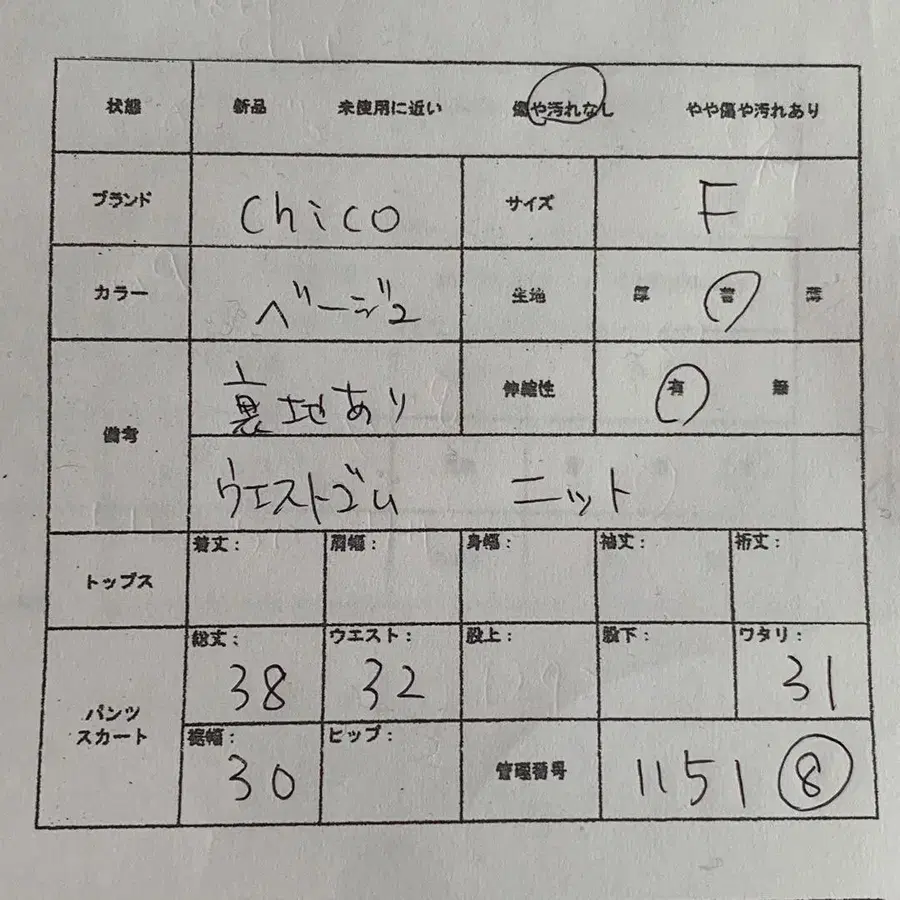 状態 新品 未使用に近い 傷や汚れなし やや傷や汚れあり
ブランド chico サイズ F
カラー ベージュ 生地 厚 普 薄
備考 裏地あり 伸縮性 有 無
ウエストゴム ニット
トップス 着丈: 肩幅: 身幅: 袖丈: 裄丈:
パンツ スカート 総丈: 38 ウエスト: 32 股上: 股下: ワタリ: 31
裾幅: 30 ヒップ: 管理番号 1151 ⑧